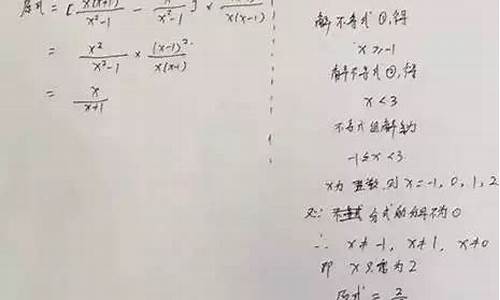 原式 = [ x(x+1)/x²-1 - x/x²-1 ] ×
= x²/x²-1 × (x-1)²/x(x-1)
= x/x+1
解不等式①,得
x ≥ -1
解不等式②,得
x < 3
不等式组解为
-1 ≤ x < 3
x为整数,则 x = -1, 0, 1, 2
又∵ 分式的分母不为0
∴ x ≠ -1, x ≠ 1, x ≠ 0
即 x只能为2
原式 = 2